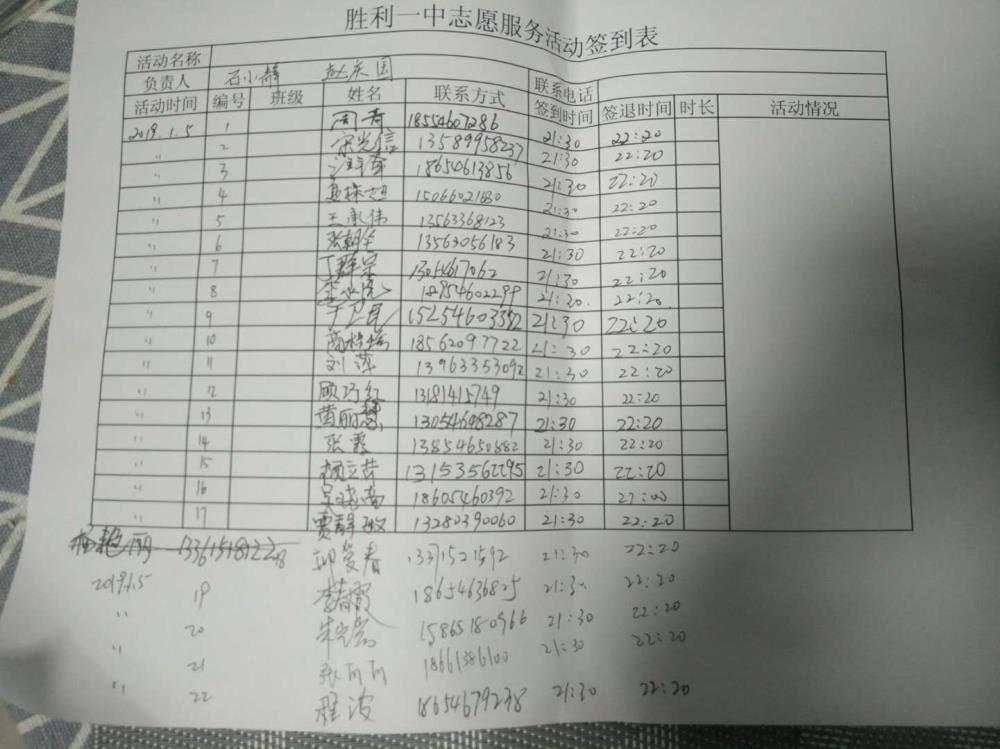 胜利一中志愿服务活动签到表
活动名称
负责人 石小静 赵庆国 联系电话
活动时间 编号 班级 姓名 联系方式 签到时间 签退时间 时长 活动情况
2019.1.5 1 周青 18554607286 21:30 22:20
〃 2 宋光信 13589958237 21:30 22:20
〃 3 18654613856 21:30 22:20
〃 4 21:30 22:20
〃 5 王 伟 13563368123 21:30 22:20
〃 6 张朝全 13563056183 21:30 22:20
〃 7 丁 宗 13054617062 21:30 22:20
〃 8 李 18954602299 21:30. 22:20
〃 9 于卫民 15254603352 21:30 22:20
〃 10 18562097722 21:30 22:20
〃 11 刘萍 13963353092 21:30 22:20
〃 12 顾巧红 13181415749 21:30 22:20
〃 13 黄丽慧 13054698287 21:30 22:20
〃 14 张霞 13854650882 21:30 22:20
〃 15 杨立芹 13153562295 21:30 22:20
〃 16 吴晓南 18605460392 21:30 22:00
〃 17 贾静敏 13280390060 21:30 22:20
杨艳丽 13361518122 18 爱春 13371521592 21:30 22:20
2019.1.5 19 李春霞 18654636825 21:30 22:20
〃 20 朱 15865180966 21:30 22:20
〃 21 张丽丽 18661386100 21:30 22:20
〃 22 程波 18654679238 21:30 22:20